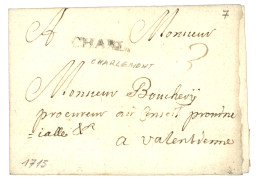 7
A Monsieur
CHARL.
CHARLEMONT
Monsieur Boucherÿ
procureur au Conseil provin
=cialle &a
a valentienne
1715